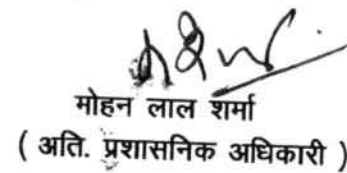 मोहन लाल शर्मा
( अति. प्रशासनिक अधिकारी )